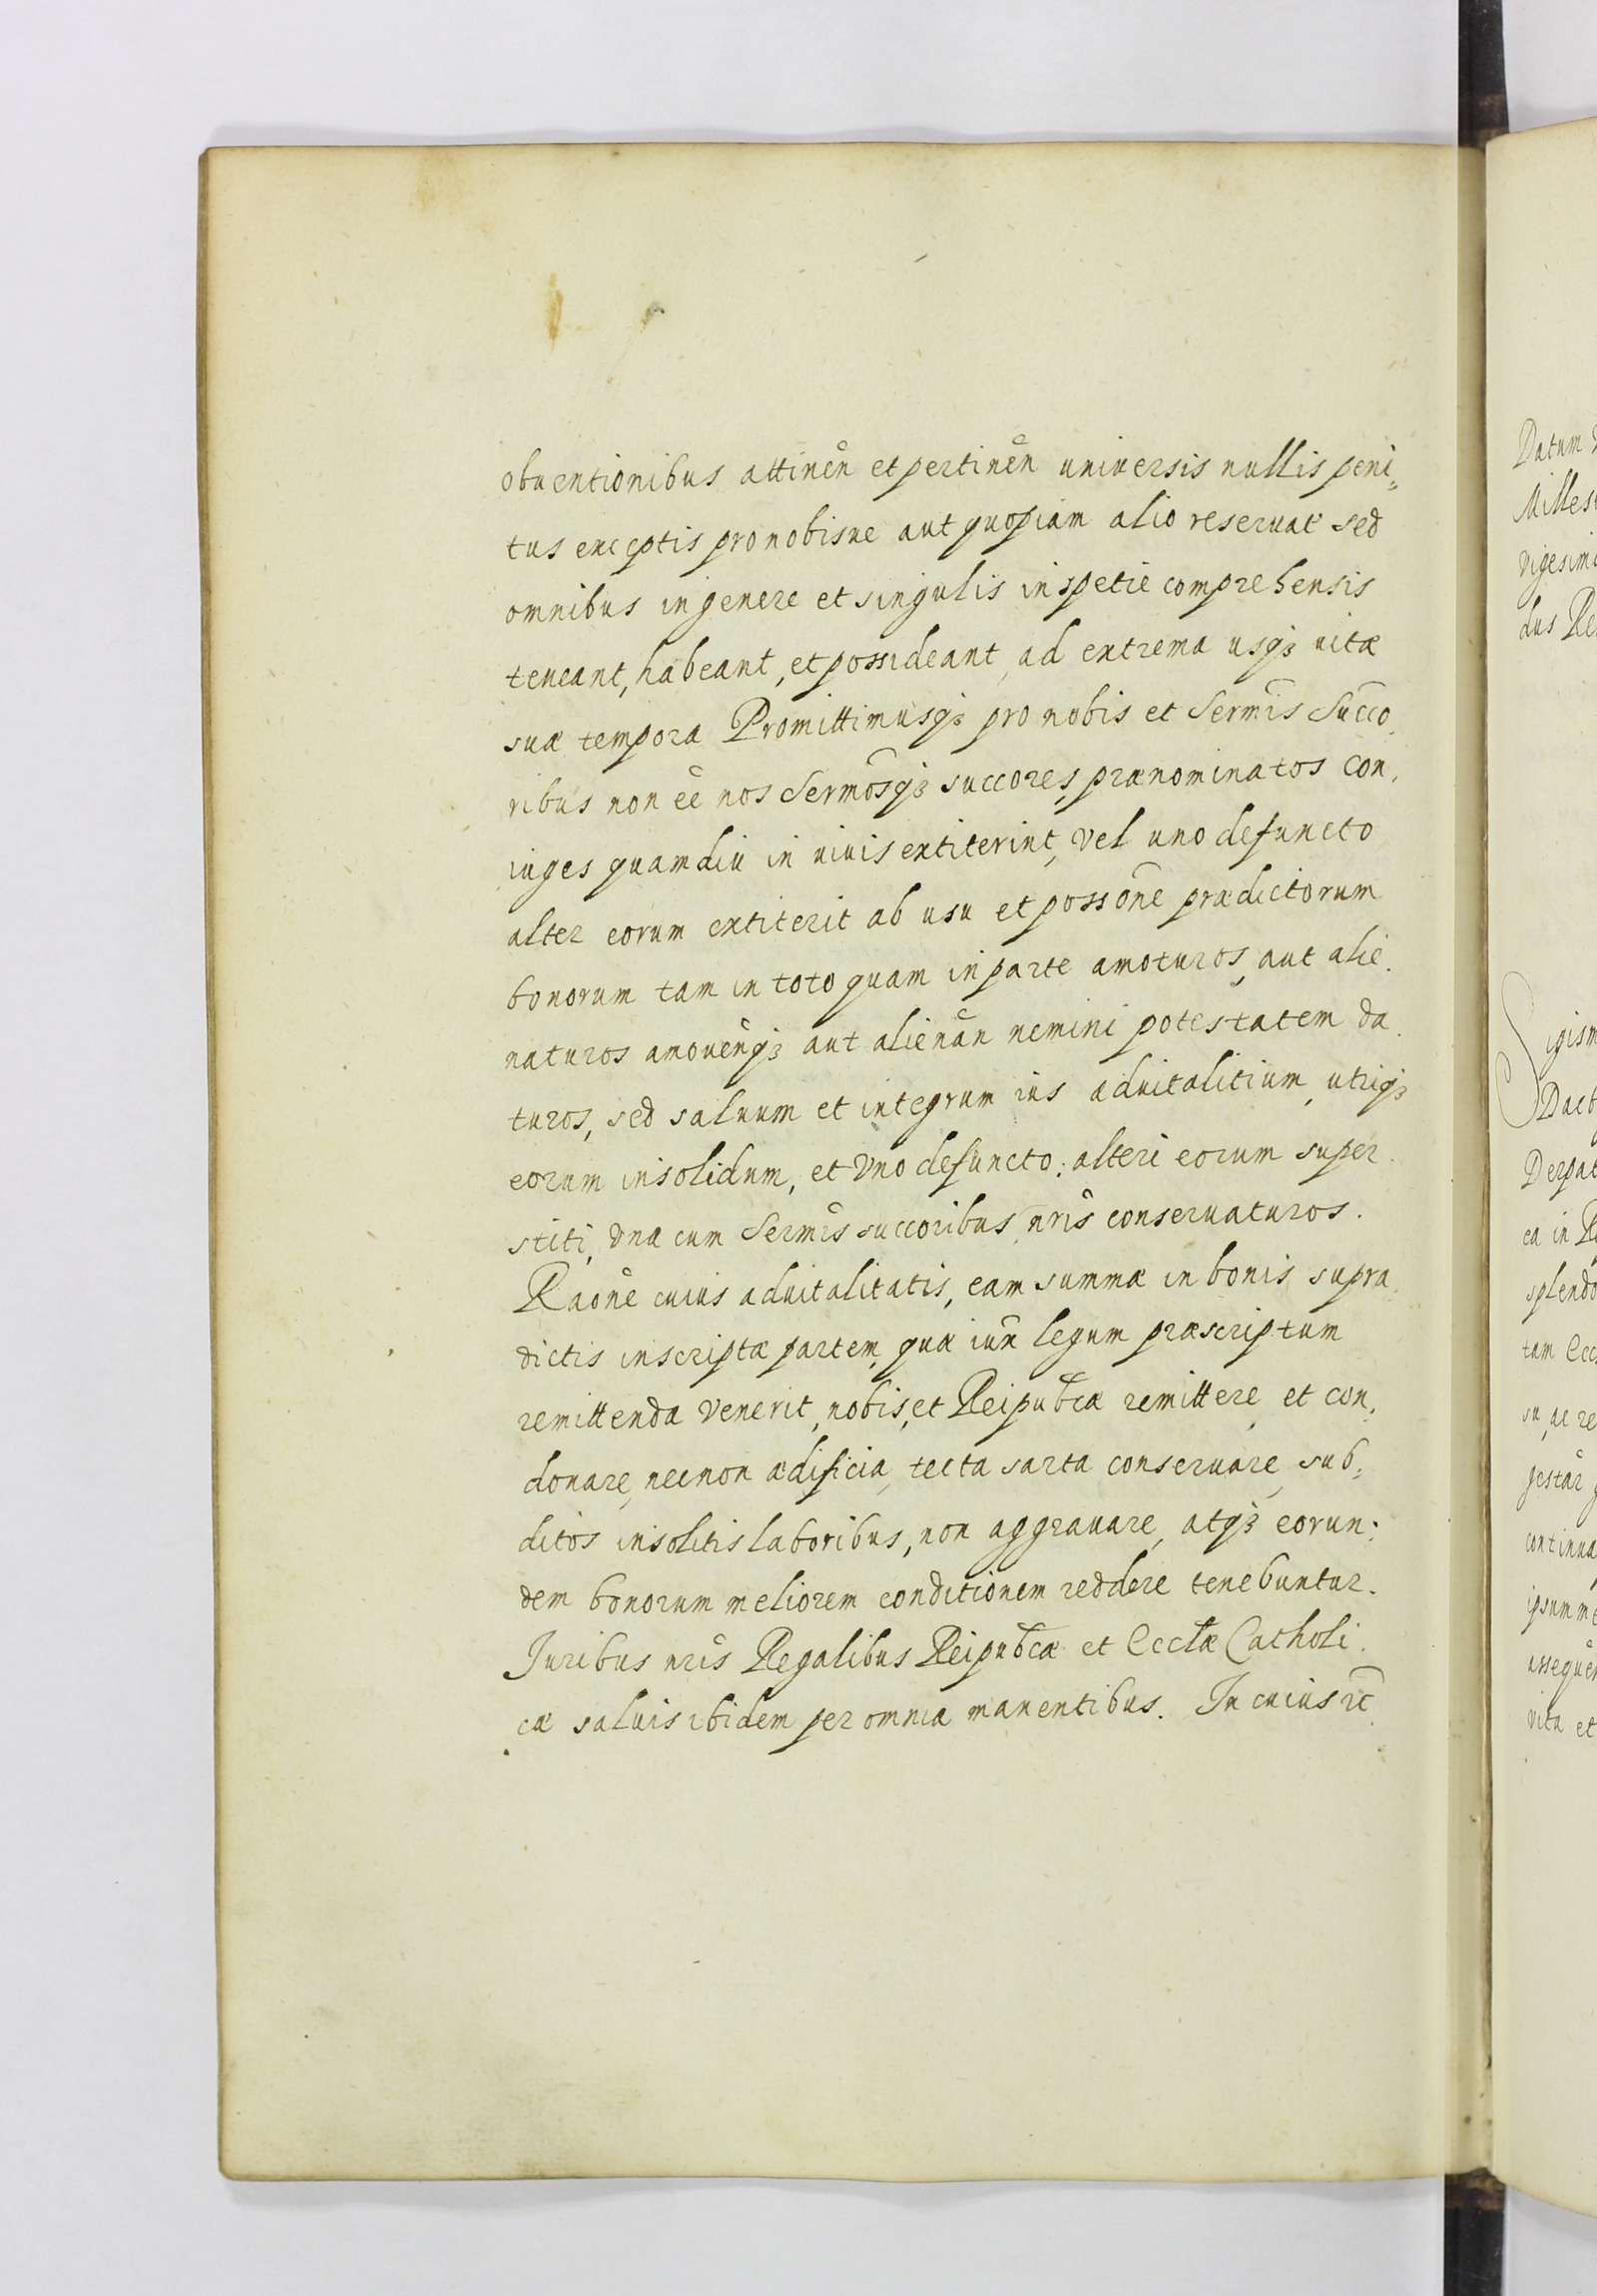 obuentionibus attineñ et pertineñ uniuersis nullis peni„
tus exceptis pro nobisue aut quopiam alio reseruat̃ sed
omnibus in genere et singulis in spetie comprehensis
teneant, habeant, et possideant, ad extrema usqꝫ uitæ
suæ tempora Promittimusqꝫ pro nobis et Serm̃is Succo,
ribus non eẽ nos Serm̃osqꝫ succores, prænominatos con,
iuges quamdiu in uiuis extiterint, vel uno defuncto
alter eorum extiterit ab usu et possõne prædictorum
bonorum tam in toto quam in parte amoturos, aut alie.
naturos amoueñqꝫ aut alienãn nemini potestatem da.
turos, sed saluum et integrum ius aduitalitium, utriqꝫ
eorum insolidum, et vno defuncto: alteri eorum super.
stiti, vna cum Serm̃is succoribus nr̃is conseruaturos.
Raõne cuius aduitalitatis, eam summæ in bonis supra
dictis inscriptæ partem, quæ iux̃ legum præscriptum
remittenda venerit, nobis, et Reipub̃cæ remittere, et con,
donare, necnon ædificia, tecta sarta conseruare, sub,
ditos insolitis laboribus, non aggrauare, atqꝫ eorun:
dem bonorum meliorem conditionem reddere tenebuntur.
Iuribus nr̃is Regalibus Reipub̃cæ et Eccl̃æ Catholi.
cæ saluis ibidem per omnia manentibus. In cuius rc̃
Datum
Milles
vigesim
dus Re
Sigism
Dact
Derpat
ea in R
splendo
tam Ecc
su, ac re
gestar̃
continua
ipsum m
assequen
vita et